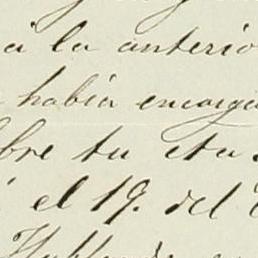 a la anterio
habia encarga
bre tu
el 19. del
Hablando